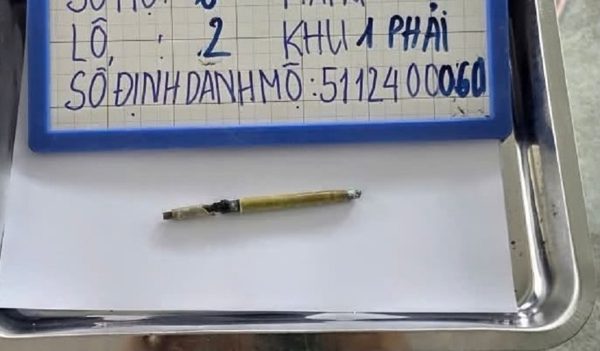 LÔ, : 2 KHU 1 PHẢI
SỐ ĐỊNH DANH MỘ : 5112400060